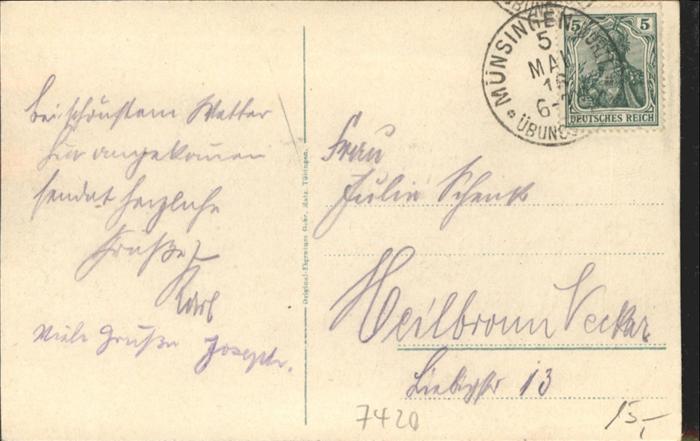 Bei schönstem Wetter
hier angekommen
sendet herzliche
Grüße
Karl
Viele Grüße Joseph.
Original-Eigentum Gebr. Metz, Tübingen.
MÜNSINGEN (WÜRTT)
5
MAI
6-7
ÜBUNGS
5 5
DEUTSCHES REICH
Frau
Julie Schenk
Heilbronn Neckar
Liebigstr 13
7420
15,-